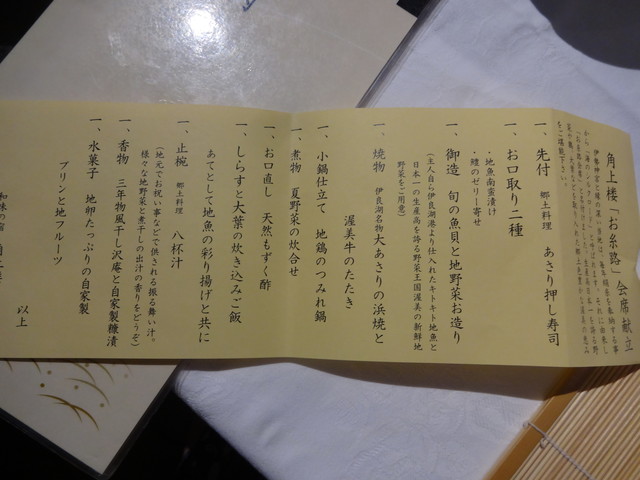 角上楼「お糸路」会席献立
一、先付 郷土料理 あさり押し寿司
一、お口取り二種
・地魚南蛮漬け
・鱧のゼリー寄せ
一、御造 旬の魚貝と地野菜お造り
(主人自ら伊良湖港より仕入れたキトキト地魚と
日本一の生産高を誇る野菜王国渥美の新鮮地
野菜をご用意)
一、焼物 伊良湖名物大あさりの浜焼と
渥美牛のたたき
一、小鍋仕立て 地鶏のつみれ鍋
一、煮物 夏野菜の炊合せ
一、お口直し 天然もずく酢
一、しらすと大葉の炊き込みご飯
あてとして地魚の彩り揚げと共に
一、止椀 郷土料理 八杯汁
(地元でお祝い事などで供される振る舞い汁。
様々な地野菜と煮干しの出汁の香りをどうぞ)
一、香物 三年物風干し沢庵と自家製糠漬
一、水菓子 地卵たっぷりの自家製
プリンと地フルーツ
以上